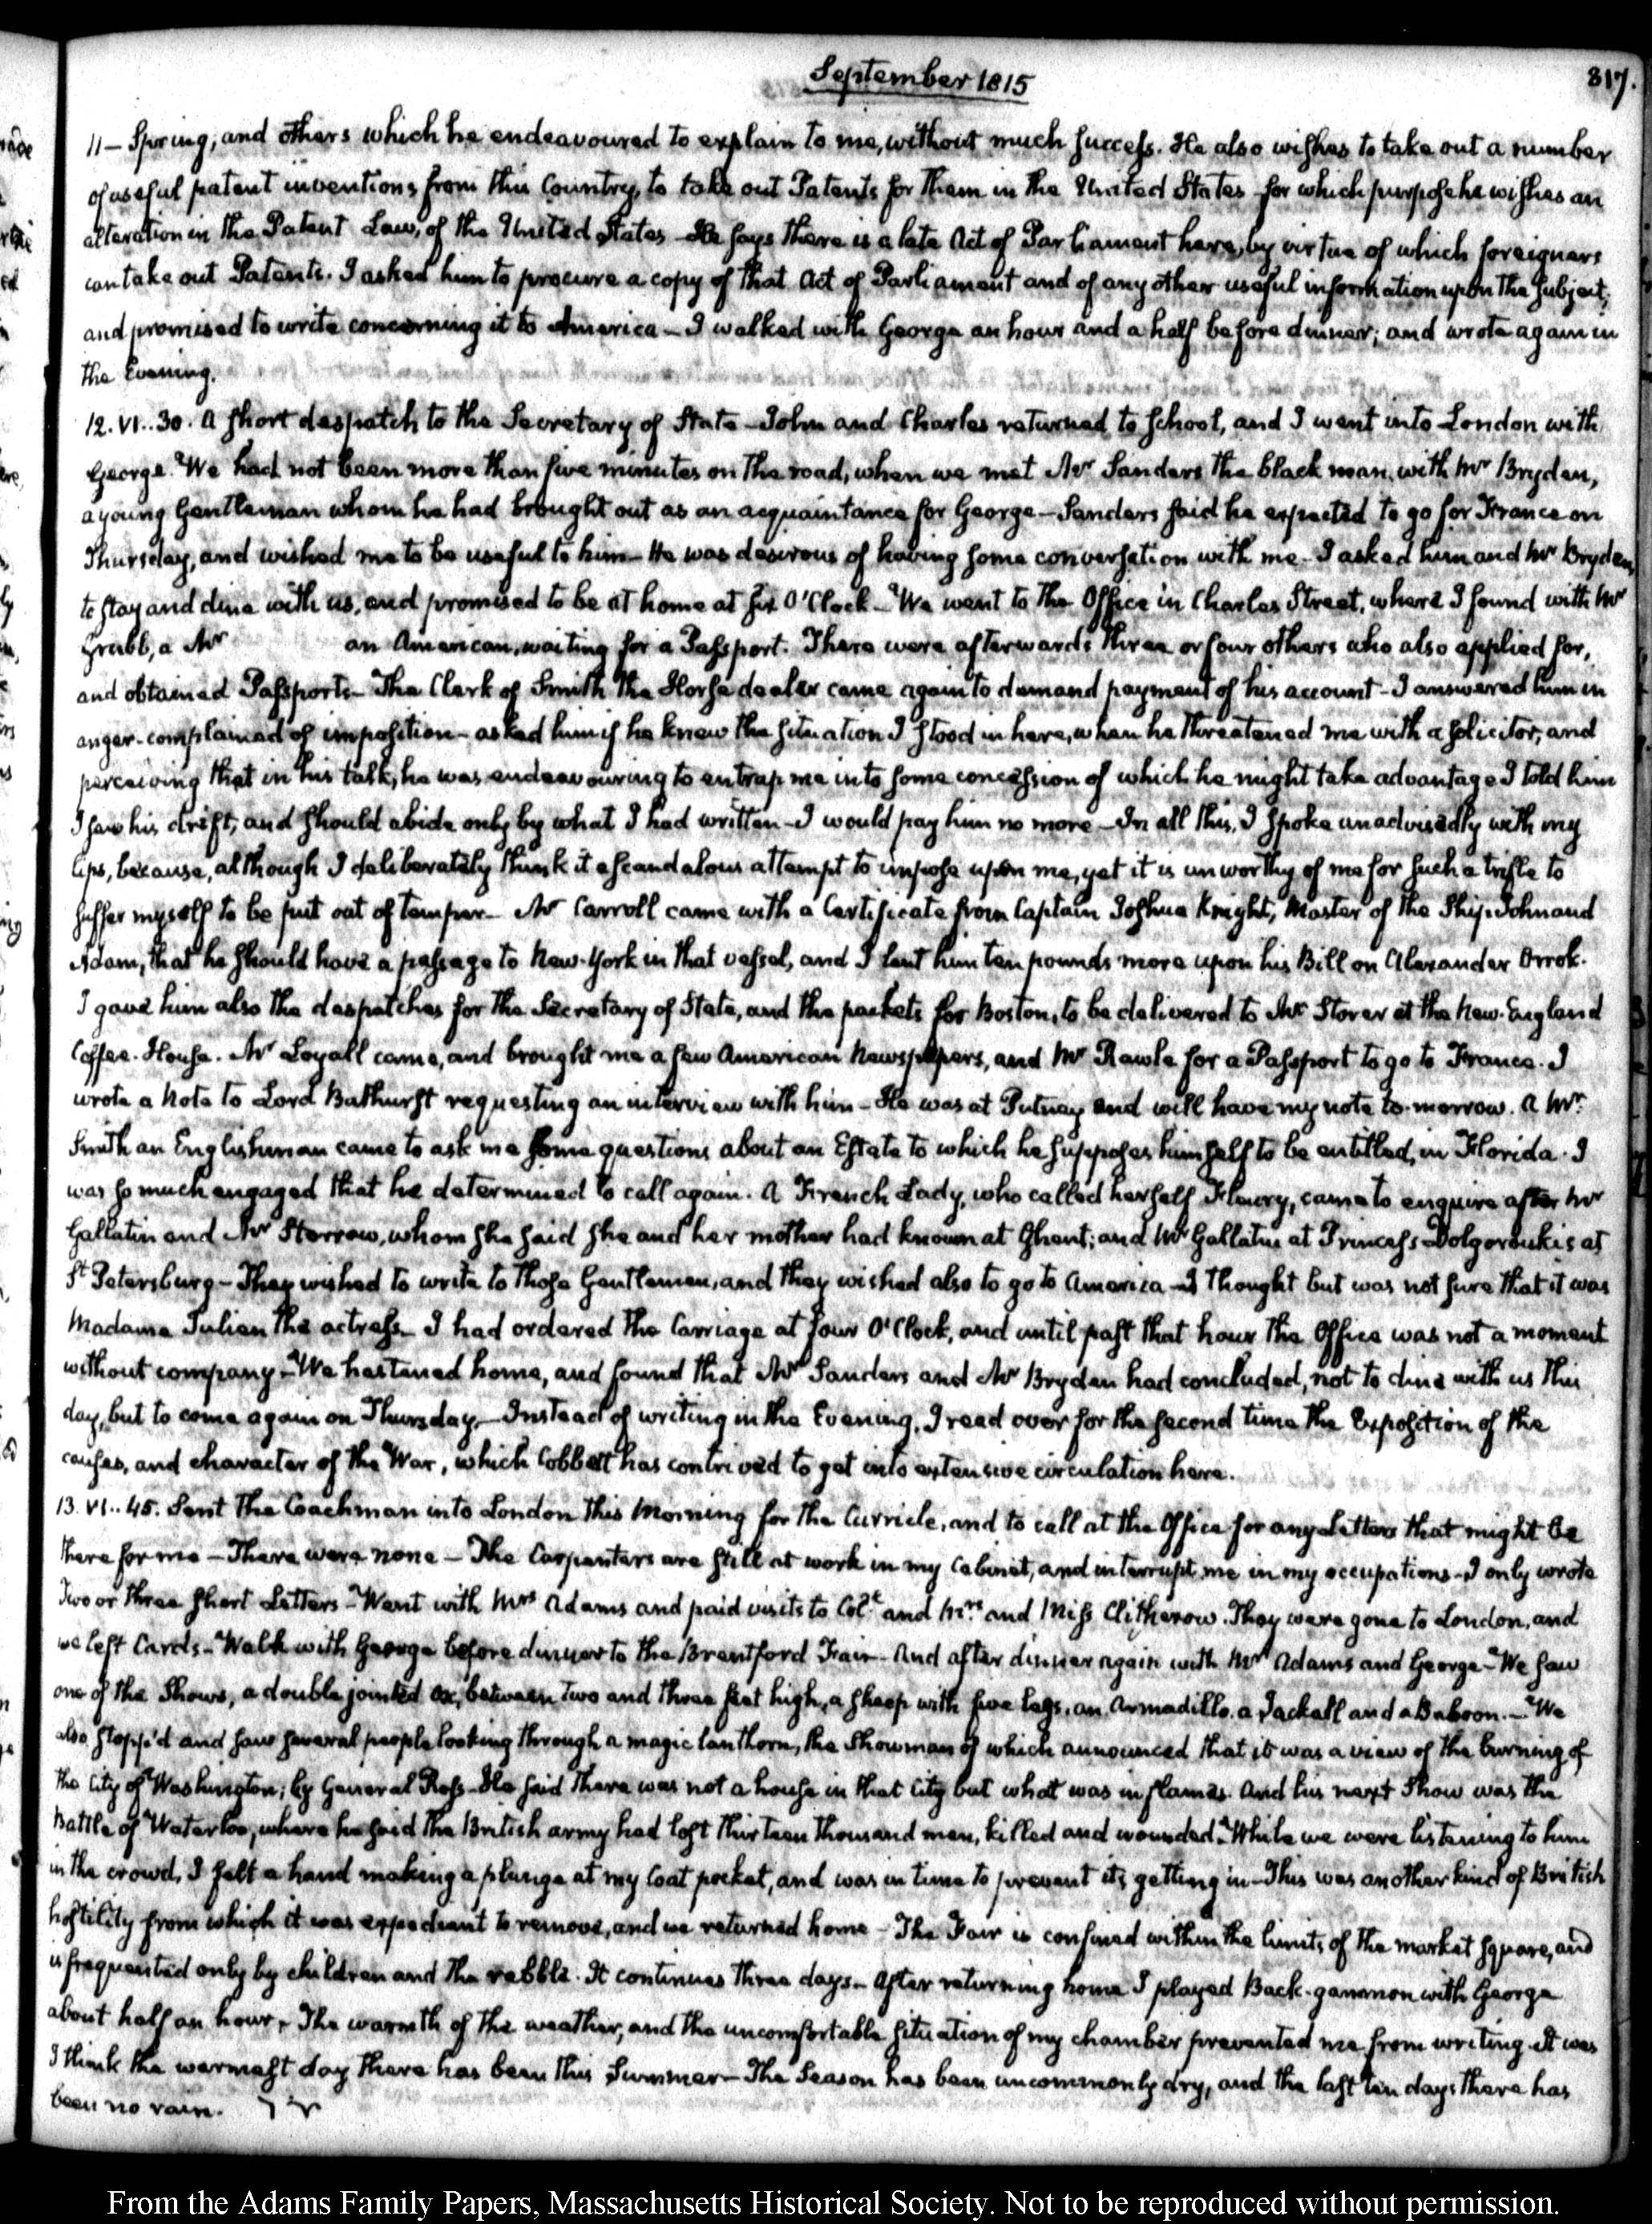 September 1815
317.
11 — Spring, and others which he endeavoured to explain to me, without much success. He also wishes to take out a number
of useful patent inventions from this Country, to take out Patents for them in the United States for which purpose he wishes an
alteration in the Patent Laws, of the United States — He says there is a late Act of Parliament here, by virtue of which foreigners
can take out Patents. I asked him to procure a copy of that Act of Parliament and of any other useful information upon the subject;
and promised to write concerning it to America — I walked with George an hour and a half before dinner; and wrote again in
the Evening.
12. VI..30. A short despatch to the Secretary of State — John and Charles returned to School, and I went into London with
George. We had not been more than five minutes on the road, when we met Mr Sanders the black man, with Mr Bryden,
a young Gentleman whom he had brought out as an acquaintance for George — Sanders said he expected to go for France on
Thursday, and wished me to be useful to him — He was desirous of having some conversation with me — I asked him and Mr Bryden,
to stay and dine with us, and promised to be at home at six O'Clock — We went to the Office in Charles Street, where I found with Mr
Grubb, a Mr an American, waiting for a Passport. There were afterwards three or four others who also applied for,
and obtained Passports — The Clerk of Smith the Horse dealer came again to demand payment of his account — I answered him in
anger — complained of imposition — asked him if he knew the situation I stood in here, when he threatened me with a solicitor, and
perceiving that in his talk, he was endeavouring to entrap me into some concession of which he might take advantage I told him
I saw his drift, and should abide only by what I had written — I would pay him no more — In all this, I spoke unadvisedly with my
lips, because, although I deliberately think it a scandalous attempt to impose upon me, yet it is unworthy of me for such a trifle to
suffer myself to be put out of temper — Mr Carroll came with a Certificate from Captain Joshua Knight, Master of the Ship John and
Adam, that he should have a passage to New-York in that vessel, and I lent him ten pounds more upon his Bill on Alexander Orrok.
I gave him also the despatches for the Secretary of State, and the packets for Boston, to be delivered to Mr Storer at the New-England
Coffee-House. Mr Loyall came, and brought me a few American Newspapers, and Mr Rawle for a Passport to go to France. I
wrote a Note to Lord Bathurst requesting an interview with him — He was at Putney and will have my note to-morrow. A Mr
Smith an Englishman came to ask me some questions about an Estate to which he supposes himself to be entitled, in Florida. I
was so much engaged that he determined to call again. A French Lady, who called herself Fleury, came to enquire after Mr
Gallatin and Mr Storrow, whom she said she and her mother had known at Ghent; and Mr Gallatin at Princess Dolgorouki's at
St Petersburg — They wished to write to those Gentlemen, and they wished also to go to America — I thought but was not sure that it was
Madame Julien the actress — I had ordered the Carriage at four O'Clock, and until past that hour the Office was not a moment
without company — We hastened home, and found that Mr Sanders and Mr Bryden had concluded, not to dine with us this
day, but to come again on Thursday — Instead of writing in the Evening, I read over for the second time the Exposition of the
causes, and character of the War, which Cobbett has contrived to get into extensive circulation here.
13. VI..45. Sent the Coachman into London this Morning for the Curricle, and to call at the Office for any Letters that might be
there for me — There were none — The Carpenters are still at work in my Cabinet, and interrupt me in my occupations — I only wrote
two or three short Letters — Went with Mrs Adams and paid visits to Col: and Mrs and Miss Clitherow. They were gone to London, and
we left Cards — Walk with George before dinner to the Brentford Fair — And after dinner again with Mrs Adams and George — We saw
one of the Shows, a double jointed Ox, between two and three feet high, a sheep with five legs, an Armadillo, a Jackall and a Baboon. — We
also stopp'd and saw several people looking through a magic lanthorn, the Showman of which announced that it was a view of the burning of
the City of Washington; by General Ross — He said there was not a house in that City but what was in flames. And his next Show was the
Battle of Waterloo, where he said the British army had lost thirteen thousand men, killed and wounded. While we were listening to him
in the crowd, I felt a hand making a plunge at my Coat pocket, and was in time to prevent its getting in — This was another kind of British
hostility from which it was expedient to remove, and we returned home — The Fair is confined within the limits of the market square, and
is frequented only by children and the rabble. It continues three days — After returning home I played Back-gammon with George
about half an hour — The warmth of the weather, and the uncomfortable situation of my chamber prevented me from writing. It was
I think the warmest day there has been this Summer — The Season has been uncommonly dry, and the last ten days there has
been no rain.
From the Adams Family Papers, Massachusetts Historical Society. Not to be reproduced without permission.